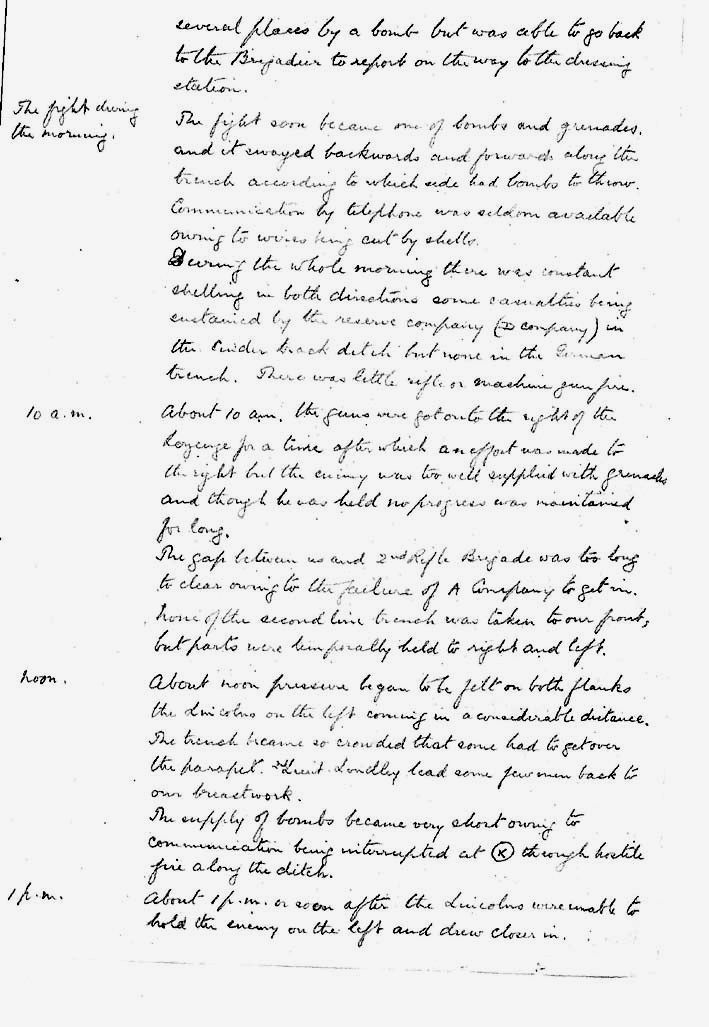 several places by a bomb but was able to go back
to the Brigadier to report on the way to the dressing
station.
The fight during
the morning.
The fight soon became one of bombs and grenades.
and it swayed backwards and forwards along the
trench according to which side had bombs to throw.
Communication by telephone was seldom available
owing to wires being cut by shells.
During the whole morning there was constant
shelling in both directions some casualties being
sustained by the reserve company (D company) in
the Cinder track ditch but none in the German
trench. There was little rifle or machine gun fire.
10 a.m.
About 10 am. the guns were got onto the right of the
Lozenge for a time after which an effort was made to
the right but the enemy was too well supplied with grenades
and though he was held no progress was maintained
for long.
The gap between us and 2nd Rifle Brigade was too long
to clear owing to the failure of A Company to get in.
None of the second line trench was taken to our front,
but parts were temporally held to right and left.
Noon.
About noon pressure began to be felt on both flanks
the Lincolns on the left coming in a considerable distance.
The trench became so crowded that some had to get over
the parapet. 2nd Lieut. Lundley lead some few men back to
our breastwork.
The supply of bombs became very short owing to
communication being interrupted at (X) through hostile
fire along the ditch.
1 p.m.
About 1 p.m. or soon after the Lincolns were unable to
hold the enemy on the left and drew closer in.